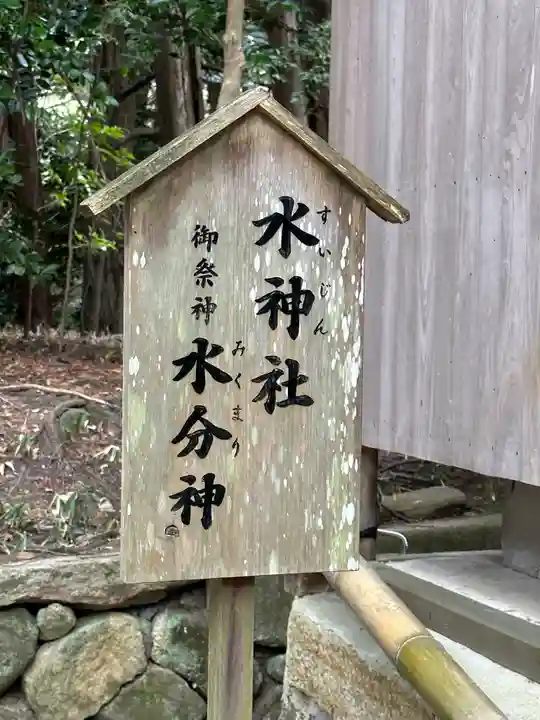 水神社
すいじん
御祭神 水分神
みくまり